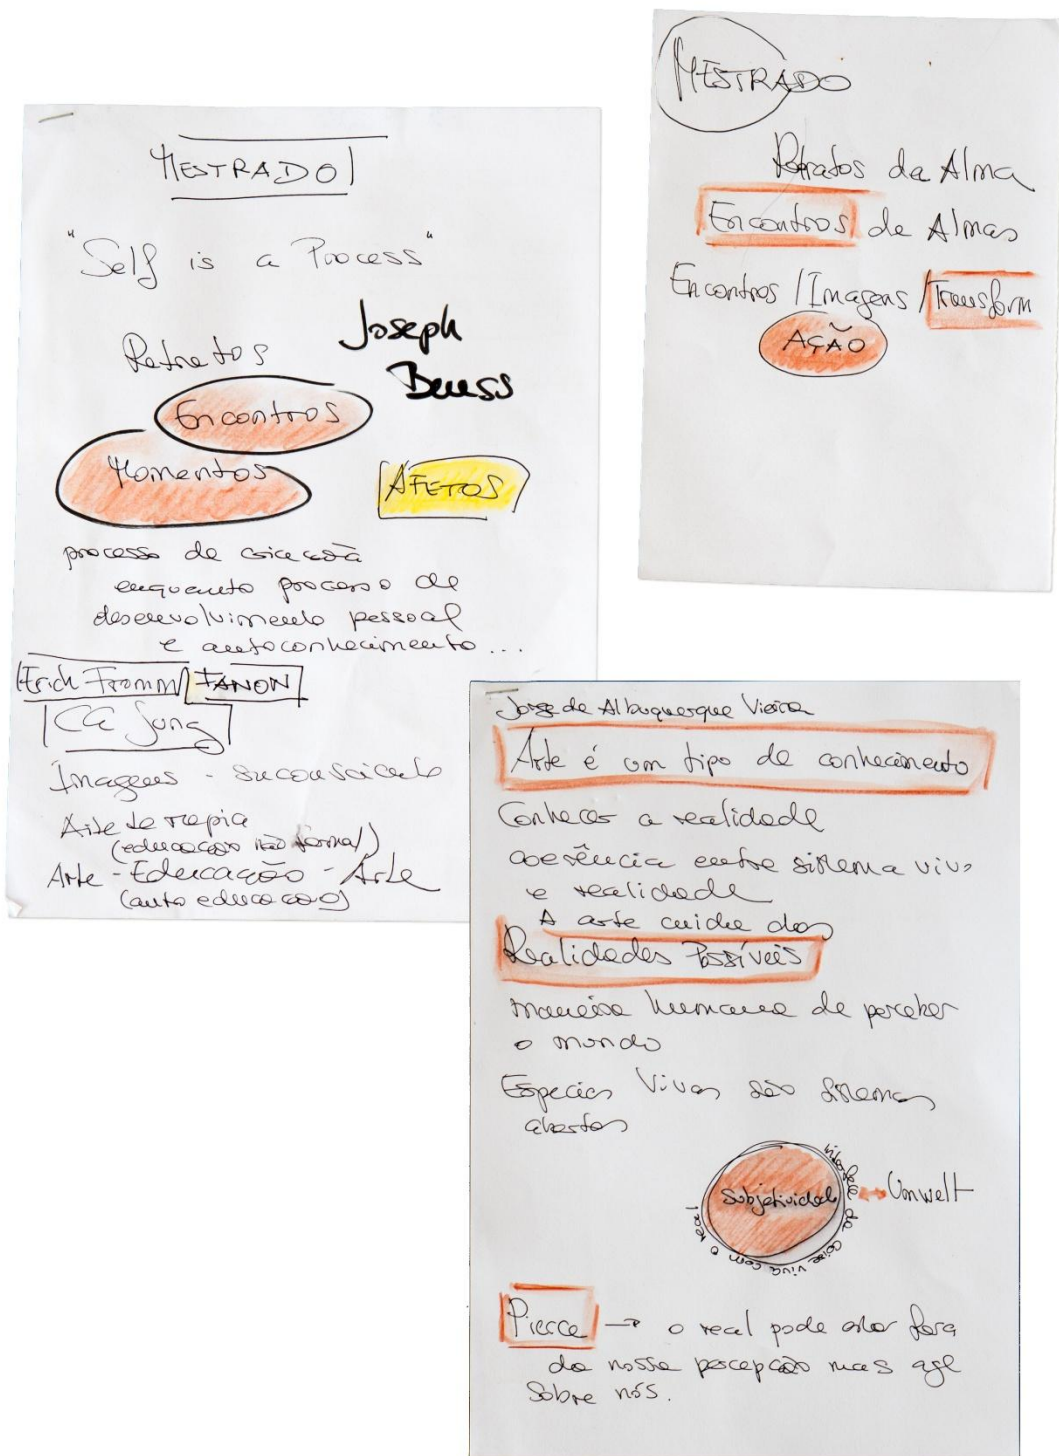 MESTRADO
"Self is a Process"
Retratos
Joseph
Beuss
Encontros
Momentos
AFETOS
processo de criação
enquanto processo de
desenvolvimento pessoal
e autoconhecimento...
Erich Fromm FANON
CG Jung
Imagens - inconsciente
Arteterapia
(educação não formal)
Arte - Educação - Arte
(auto educação)
MESTRADO
Retratos da Alma
Encontros de Almas
Encontros / Imagens / Transform
AÇÃO
Jorge de Albuquerque Vieira
Arte é um tipo de conhecimento
Conhecer a realidade
coerência entre sistema vivo
e realidade
A arte cuida das
Realidades Possíveis
maneira humana de perceber
o mundo
Espécies Vivas são sistemas
abertos
Subjetividade
interface da coisa viva com o real
Umwelt
Pierce → o real pode estar fora
da nossa percepção mas age
sobre nós.